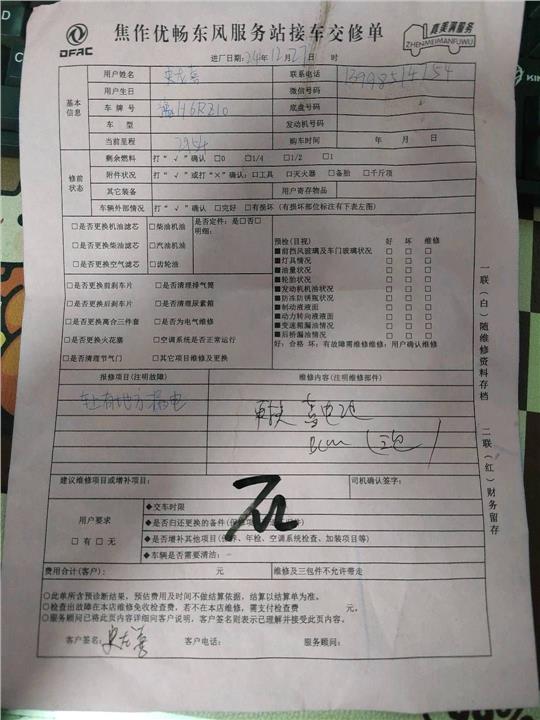 DFAC
焦作优畅东风服务站接车交修单
真美满服务
ZHENMEIMANFUWU
进厂日期:24年12月27日 时
基本信息
用户姓名 联系电话
用户生日 微信号码
车牌号 H6RZ10 底盘号码
车型 发动机号码
当前里程 7954 购车时间 年 月 日
修前状态
剩余燃料 打“√”确认 □0 □1/4 □1/2 □1
附件状况 打“√”或打“×”确认:□工具 □灭火器 □备胎 □千斤顶
其它装备 用户寄存物品
车辆外部情况 打“√”确认 □完好 □有损坏(有损坏部位标注有下表左图)
□是否更换机油滤芯 □柴油机油 是否定件:是□否□
□是否更换柴油滤芯 □汽油机油 明细:
□是否更换空气滤芯 □齿轮油
□是否更换前刹车片 □是否清理排气筒
□是否更换后刹车片 □是否清理尿素箱
□是否更换离合三件套 □是否为电气维修
□是否更换火花塞 □空调系统是否正常运行
□是否清理节气门 □其它项目维修及更换
预检(目视) 好 坏 维修
■前挡风玻璃及车门玻璃状况 □ □ □
■灯具情况 □ □ □
■油量状况 □ □ □
■轮胎状况 □ □ □
■发动机机油状况 □ □ □
■防冻防锈瓶状况 □ □ □
■制动液液面 □ □ □
■动力转向液液面 □ □ □
■变速箱漏油情况 □ □ □
■后桥漏油情况 □ □ □
好:合格 坏:有故障需维修维修:用户确认维修
报修项目(注明故障) 维修内容(注明维修部件)
车上有地方漏电 更换蓄电池
(三包)
建议维修项目或增补项目: 司机确认签字:
用户要求
□有 □无
◆交车时限
◆是否归还更换的备件
◆是否增补其他项目(保养、年检、空调系统检查、加装项目等)
◆车辆是否需要清洁:
费用合计(客户): 元 维修及三包件不允许带走
○此单所含预诊断结果,预估费用及时间不做结算依据,结算以结算单为准。
○检查出故障在本店维修免收检查费,若不在本店维修,需支付检查费 元。
○服务顾问已将此页内容详细向客户说明,客户签名则表示已理解并接受此页内容。
客户签名: 客户电话: 服务顾问:
一联(白)随维修资料存档
二联(红)财务留存